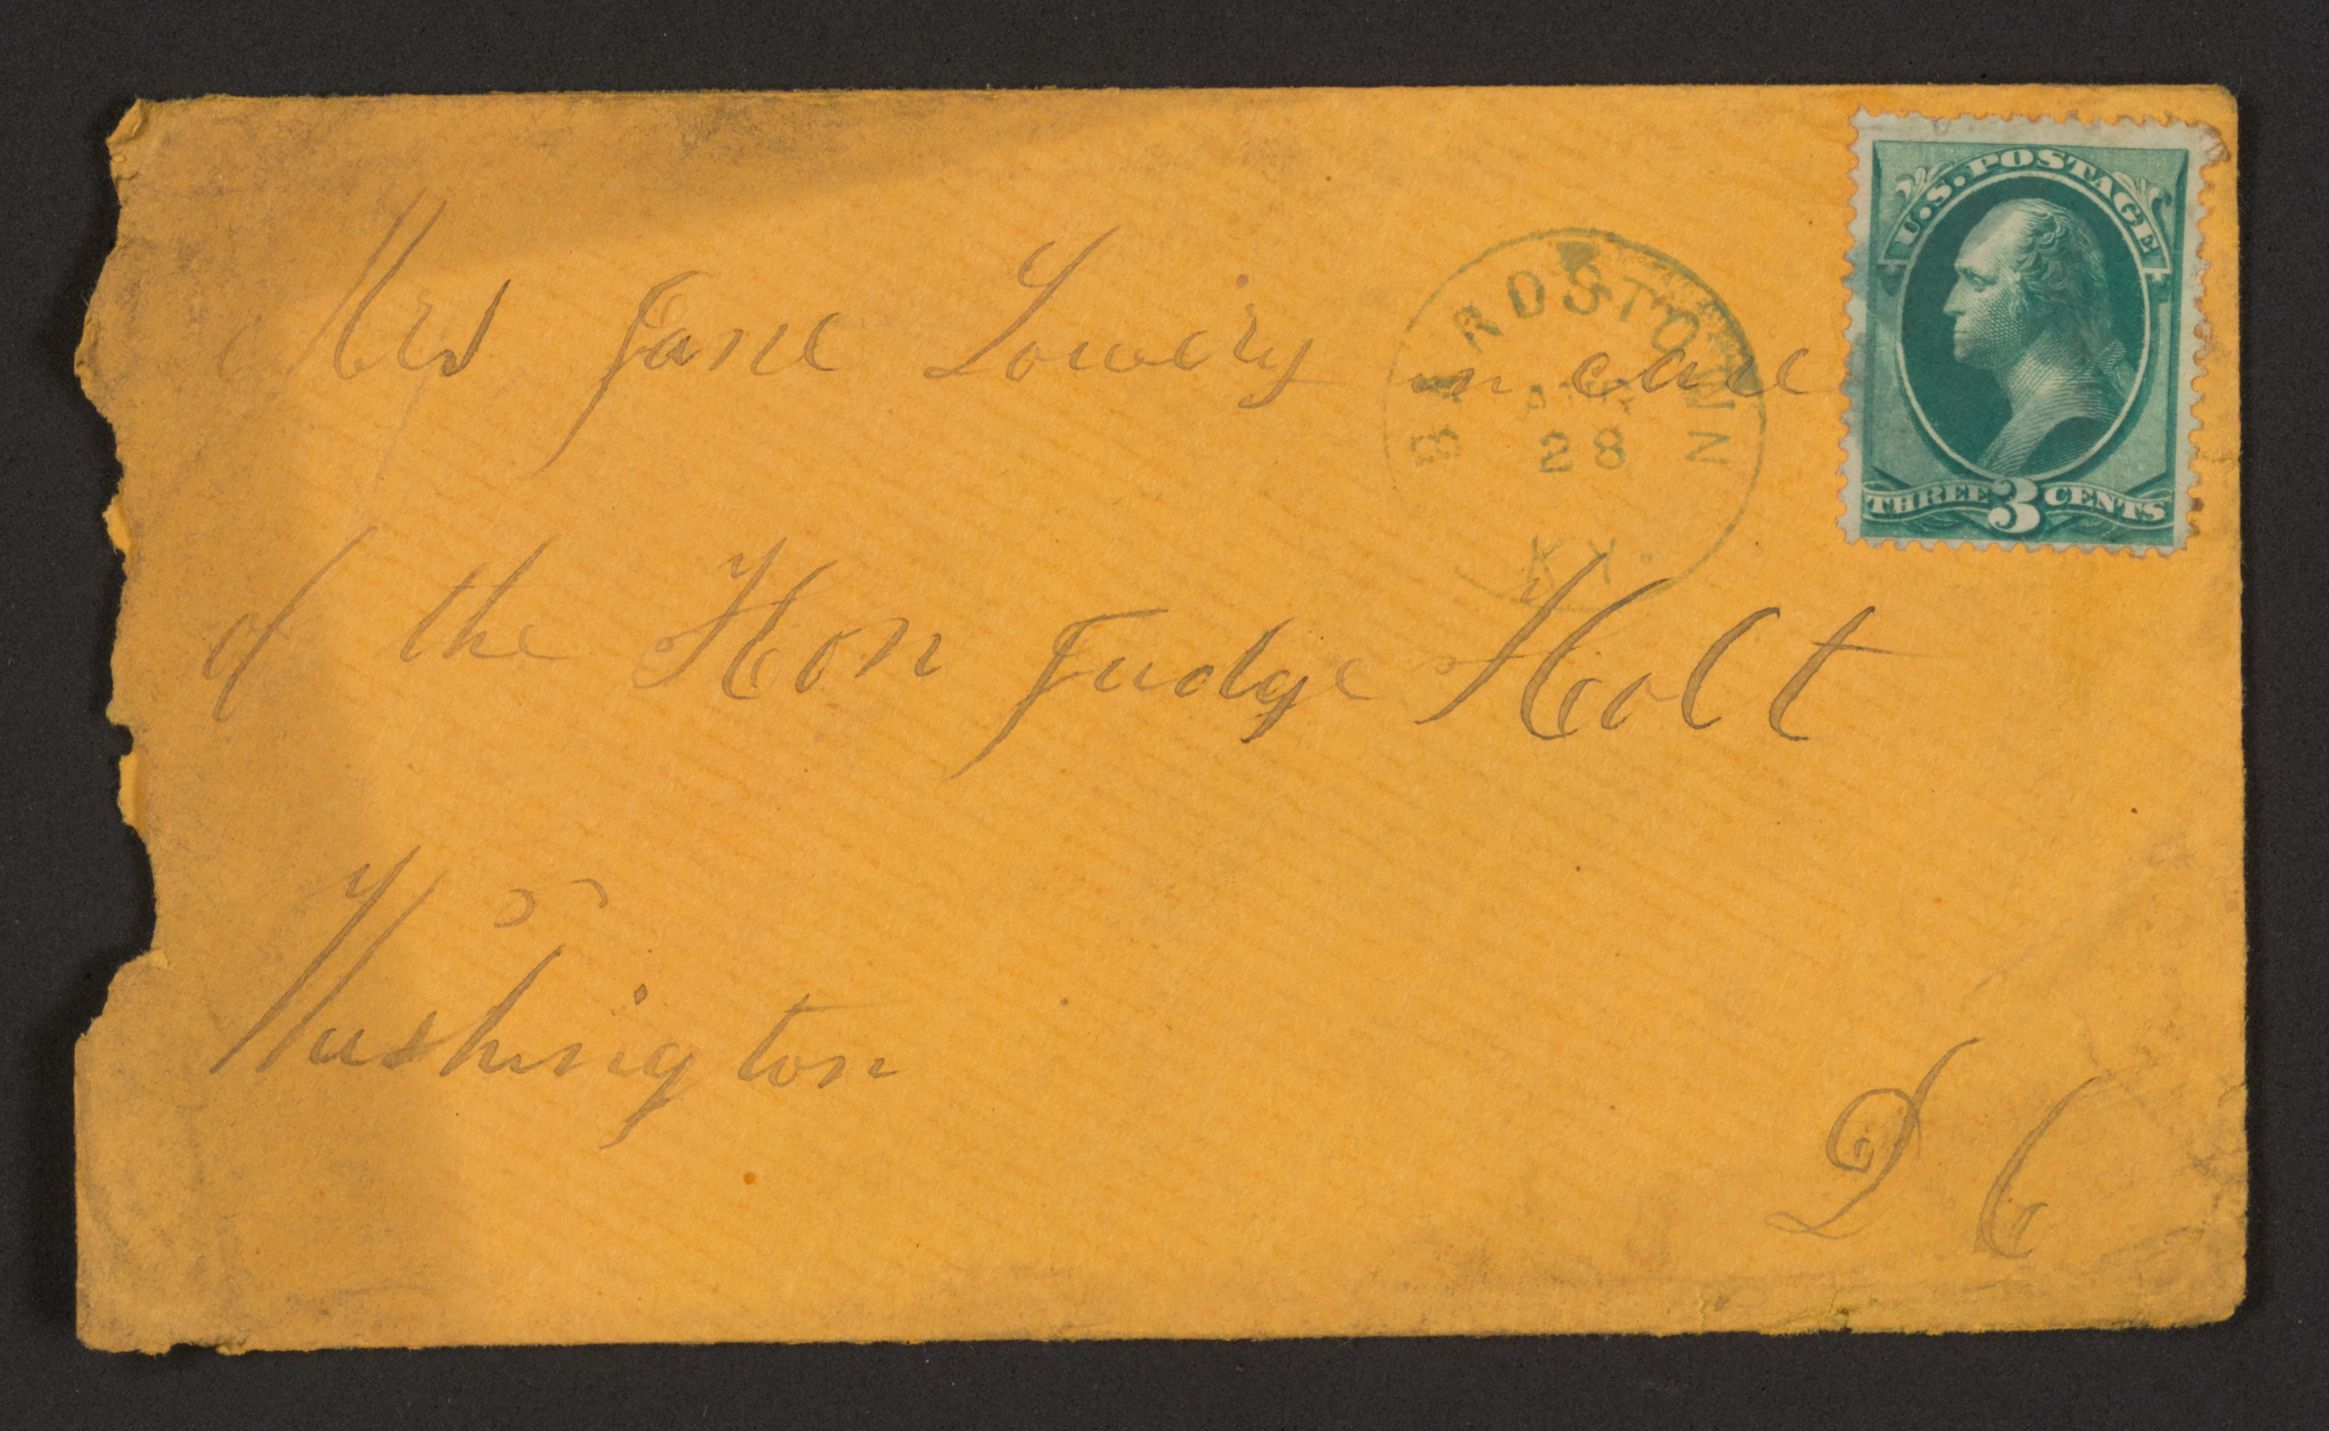 U.S. POSTAGE
THREE 3 CENTS
BARDSTOWN
28
KY.
Mrs Jane Lowery in care
of the Hon Judge Holt
Washington
D C